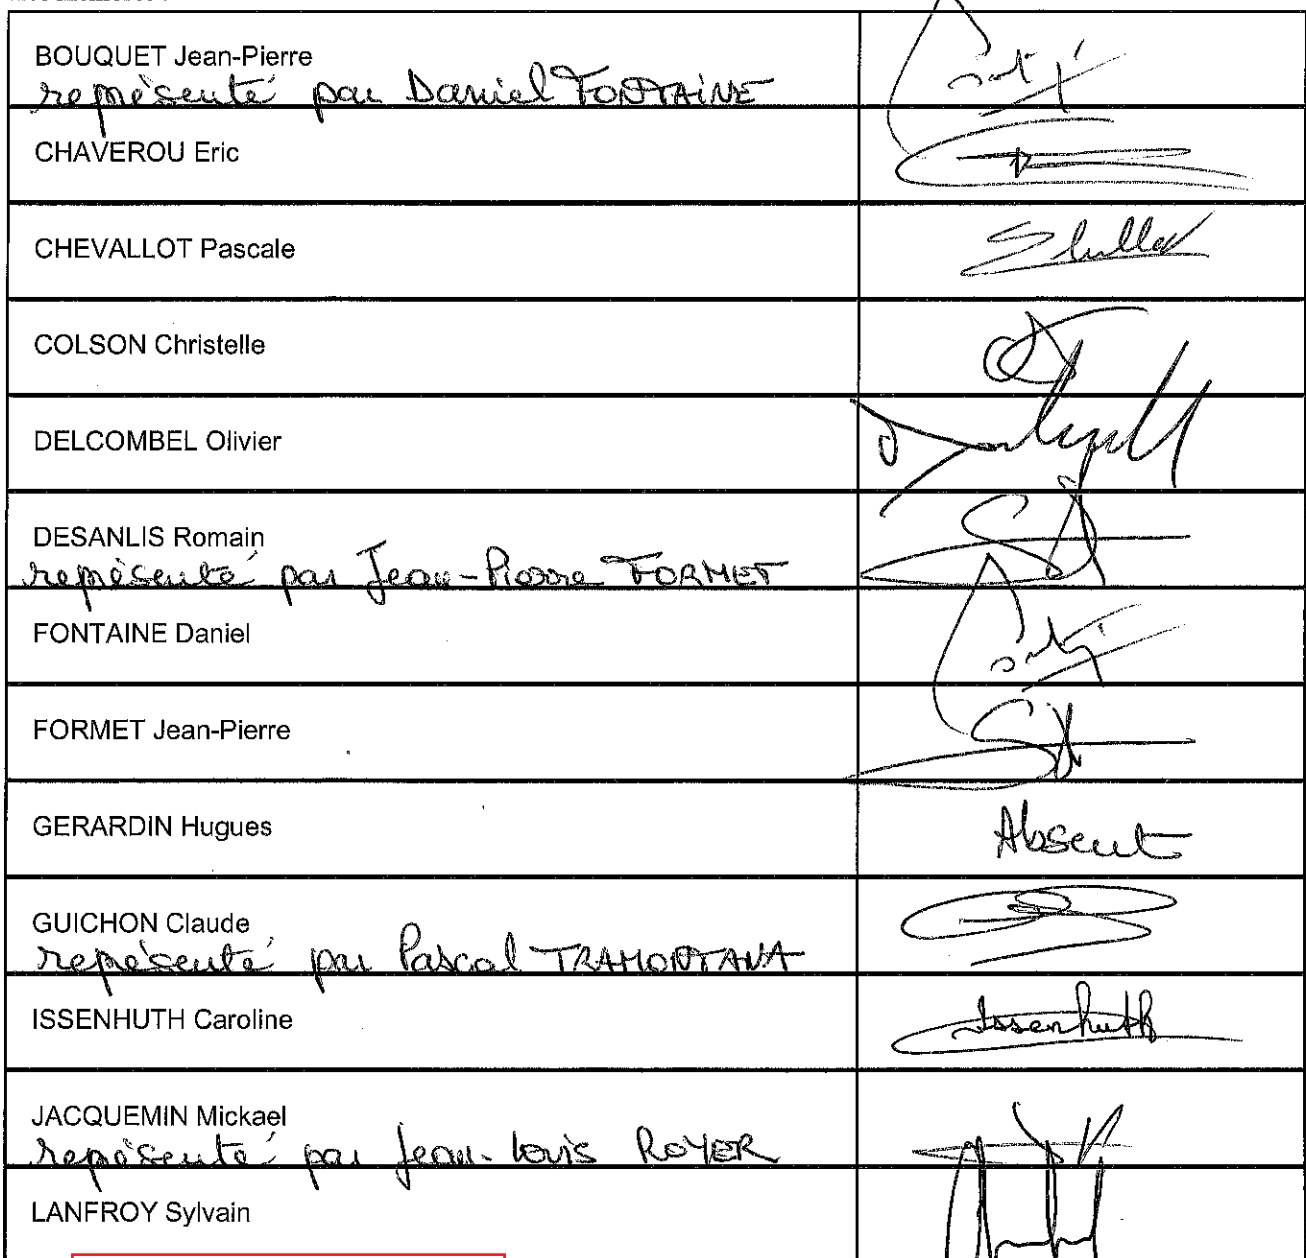 BOUQUET Jean-Pierre
représenté par Daniel FONTAINE
CHAVEROU Eric
CHEVALLOT Pascale
COLSON Christelle
DELCOMBEL Olivier
DESANLIS Romain
représenté par Jean-Pierre FORMET
FONTAINE Daniel
FORMET Jean-Pierre
GERARDIN Hugues
Absent
GUICHON Claude
représenté par Pascal TRAMONTANA
ISSENHUTH Caroline
Issenhuth
JACQUEMIN Mickael
représenté par Jean-Louis ROYER
LANFROY Sylvain